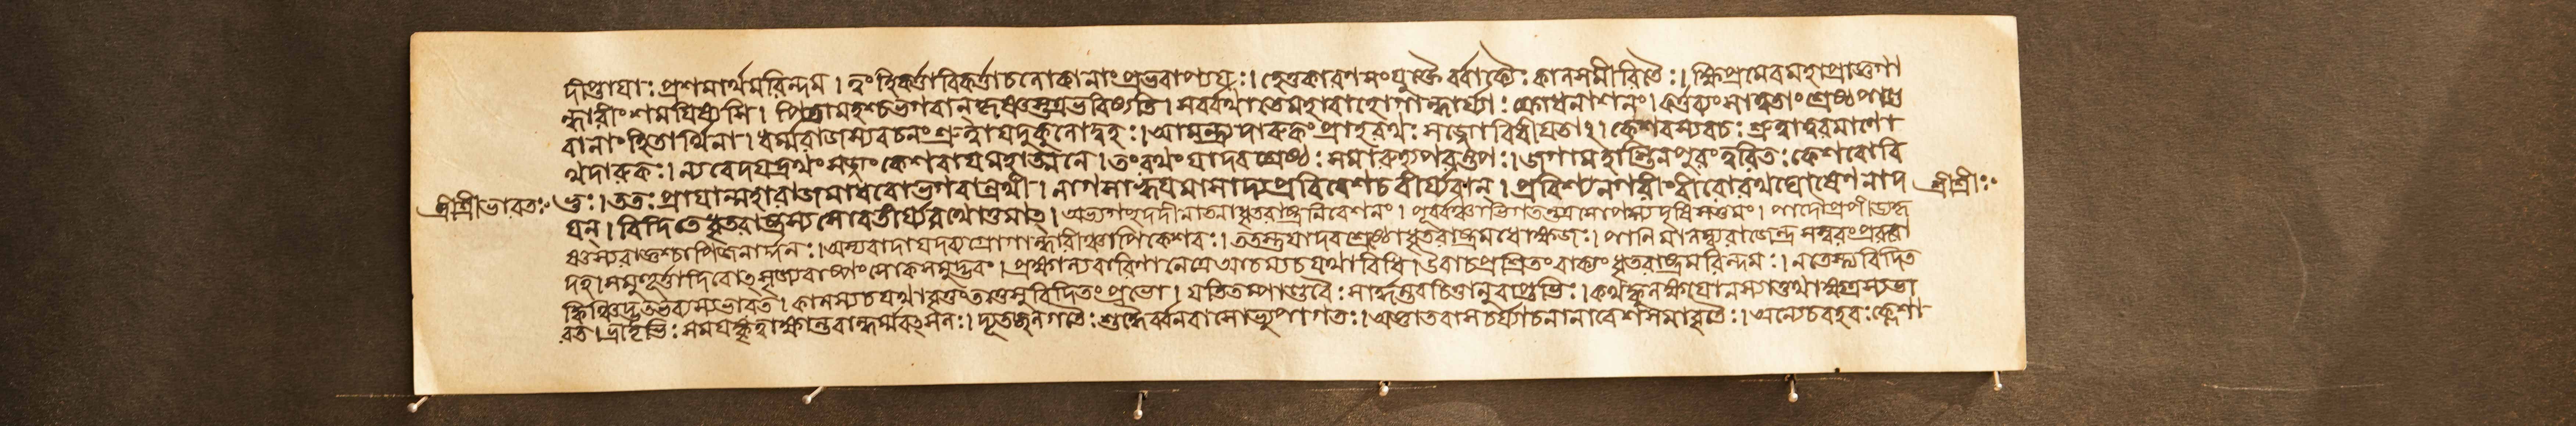 দীপ্তায়াঃ প্রশমার্থমরিন্দম । ত্বং হি কর্ত্তা বিকর্ত্তা চ লোকানাং প্রভবাপ্যয়ঃ । হেতুকারণসংযুক্তৈ র্ব্বাক্যৈঃ কালসমীরিতৈঃ । ক্ষিপ্রমেব মহাপ্রাজ্ঞ গা
ন্ধারীং শময়িষ্যসি । পিতামহশ্চ ভগবান্ কৃষ্ণস্তত্র ভবিষ্যতি । সর্ব্বথা তে মহাবাহো গান্ধার্য্যাঃ ক্রোধনাশনং । কর্ত্তব্যং সাত্বতাং শ্রেষ্ঠ পাণ্ড
বানাং হিতার্থিনা । ধর্ম্মরাজস্য বচনং শ্রুত্বা যদুকুলোদ্বহঃ । আমন্ত্র্য দারুকং প্রাহ রথঃ সজ্জো বিধীয়তাং । কেশবস্য বচঃ শ্রুত্বা ত্বরমাণো
থ দারুকঃ । ন্যবেদয়দ্রথং সজ্জং কেশবায় মহাত্মনে । তং রথং যাদবশ্রেষ্ঠঃ সমারুহ্য পরন্তপঃ । জগাম হাস্তিনপুরং ত্বরিতঃ কেশবো বি
শ্রীশ্রীভারতঃ ভুঃ । ততঃ প্রায়ান্মহারাজ মাধবো ভগবান্ রথী । নাগসাহ্বয়মাসাদ্য প্রবিবেশ চ বীর্য্যবান্ । প্রবিশ্য নগরীং বীরো রথঘোষেণ নাদ শ্রীশ্রীঃ
য়ন্ । বিদিতে ধৃতরাষ্ট্রস্য সোবতীর্য্য রথোত্তমাত্ । অভ্যগচ্ছদদীনাত্মা ধৃতরাষ্ট্রনিবেশনং । পূর্ব্বঞ্চাভিগতন্তত্র সোপশ্যদৃষিসত্তমং । পাদৌ প্রপীড্য কৃ
ষ্ণস্য রাজ্ঞশ্চাপি জনার্দ্দনঃ । অভ্যবাদয়দব্যগ্রো গান্ধারীঞ্চাপি কেশবঃ । ততস্তু যাদবশ্রেষ্ঠো ধৃতরাষ্ট্রমধোক্ষজঃ । পাণিমালম্ব্য রাজেন্দ্র সস্বরং প্ররুরো
দ হ । স মুহূর্ত্তাদিবোত্সৃজ্য বাষ্পং শোকসমুদ্ভবং । প্রক্ষাল্য বারিণা নেত্রে আচম্য চ যথাবিধি । উবাচ প্রশ্রিতং বাক্যং ধৃতরাষ্ট্রমরিন্দমঃ । ন তেস্ত্যবিদিত
ঙ্কিঞ্চিদ্ভূতভব্যস্য ভারত । কালস্য চ যথাবৃত্তং তত্তে সুবিদিতং প্রভো । যতিতম্পাণ্ডবৈঃ সার্দ্ধন্তব চিত্তানুবর্ত্তিভিঃ । কথং কুলক্ষয়ো ন স্যাত্তথা ক্ষত্রস্য ভা
রত । ভ্রাতৃভিঃ সময়ঙ্কৃত্বা ক্ষান্তবান্ধর্ম্মবত্সলঃ । দ্যূতচ্ছলজিতৈঃ শুদ্ধৈ র্ব্বনবাসোভ্যুপাগতঃ । অজ্ঞাতবাসচর্য্যা চ নানাবেশসমাবৃতৈঃ । অন্যে চ বহবঃ ক্লেশা